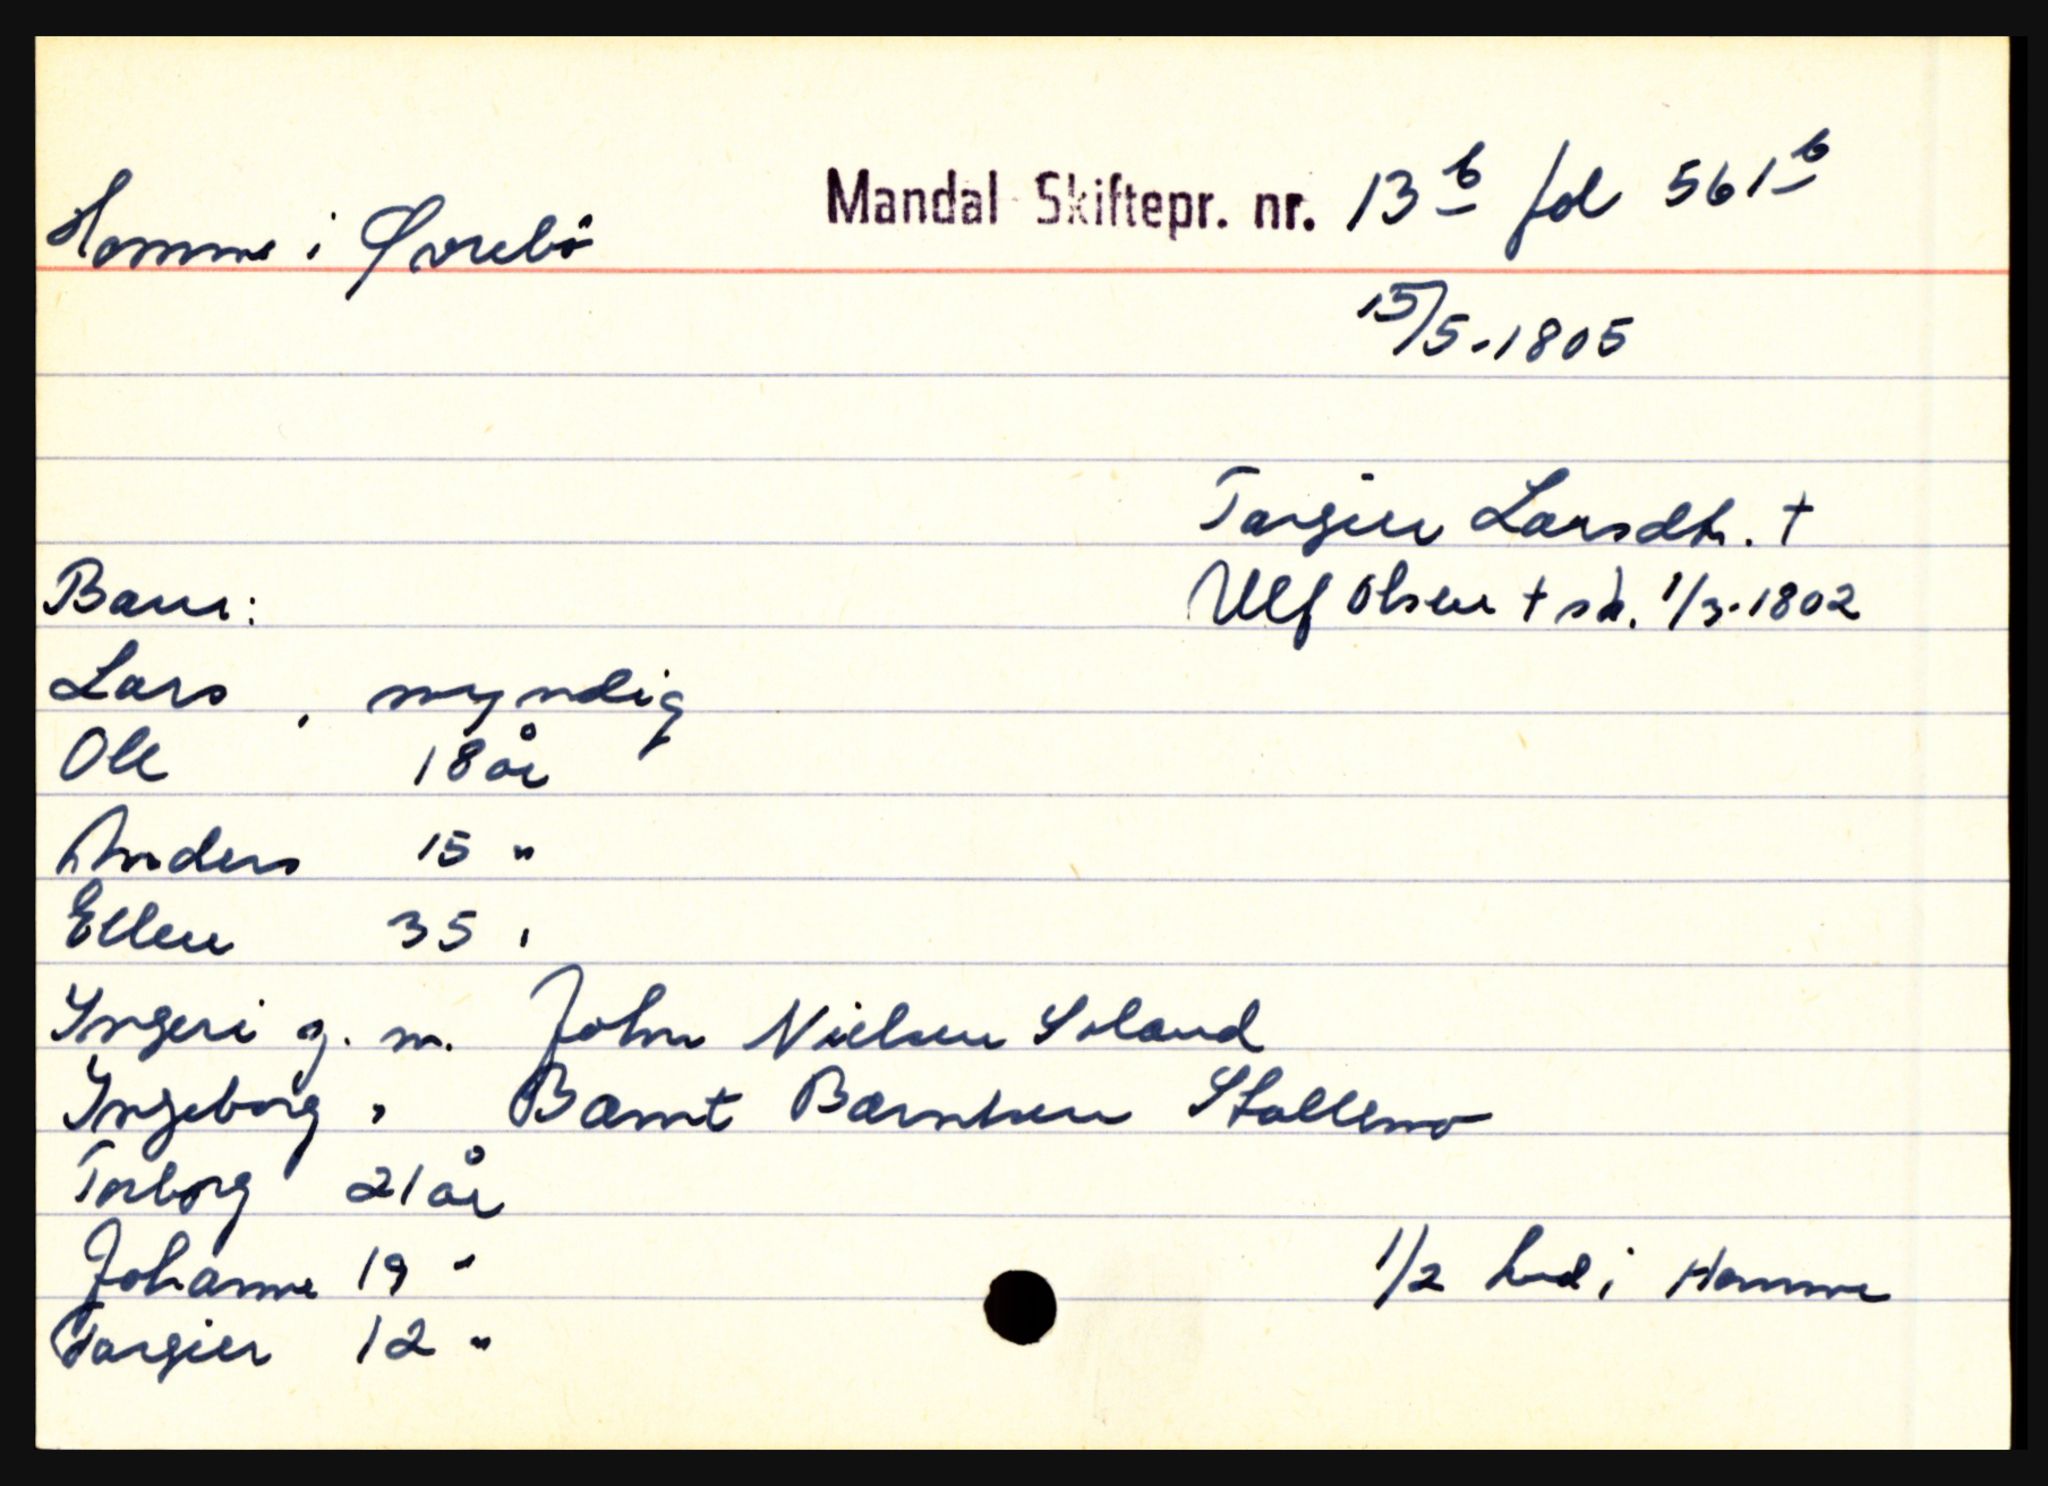 Homme i Øvrebø
Mandal Skiftepr. nr. 13 b fol 561 b
15/5-1805
Targier Larsdtr. †
Ulf Olsen † sk. 1/3-1802
Barn:
Lars, myndig
Ole 18 år
Anders 15 "
Ellen 35 "
Yngeri g. m. John Nielsen Soland
Yngeborg " Bærnt Bærntsen Stallemo
Torborg 21 år
Johanne 19 "
Targier 12 "
1/2 hud i Homme